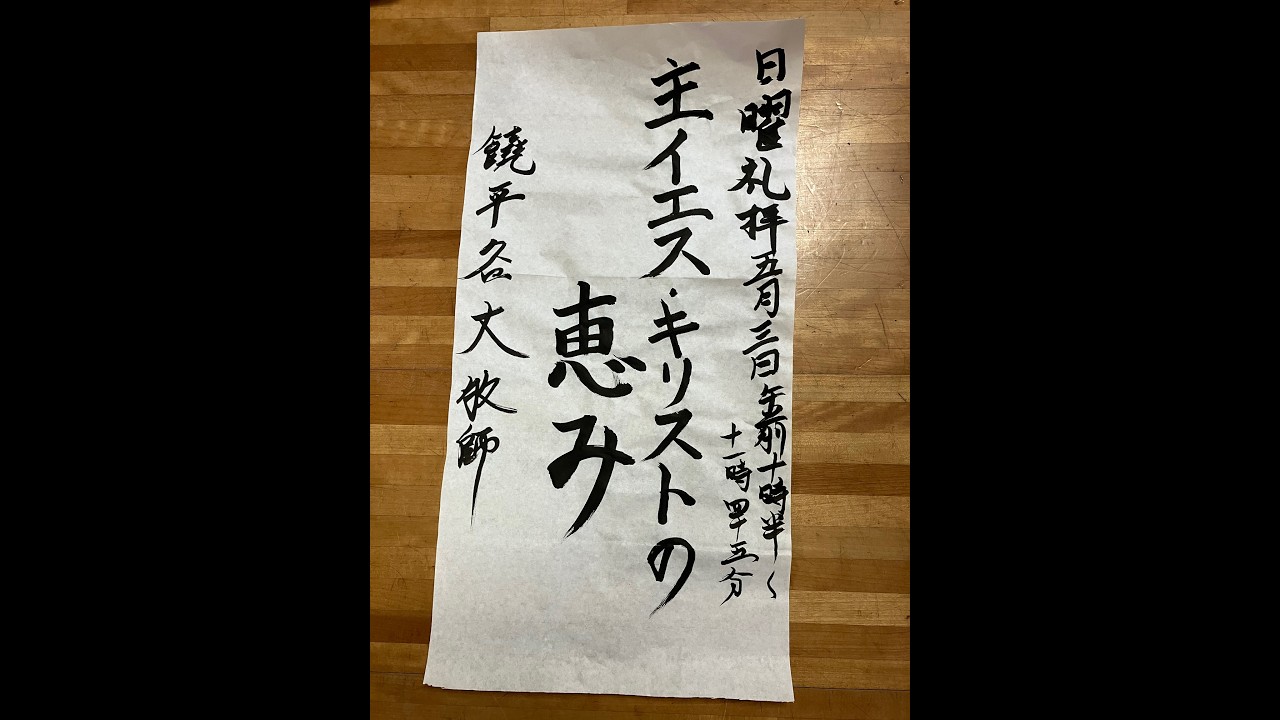 日曜礼拝五月三日午前十時半〜
十一時四十五分
主イエス・キリストの
恵み
饒平名丈牧師